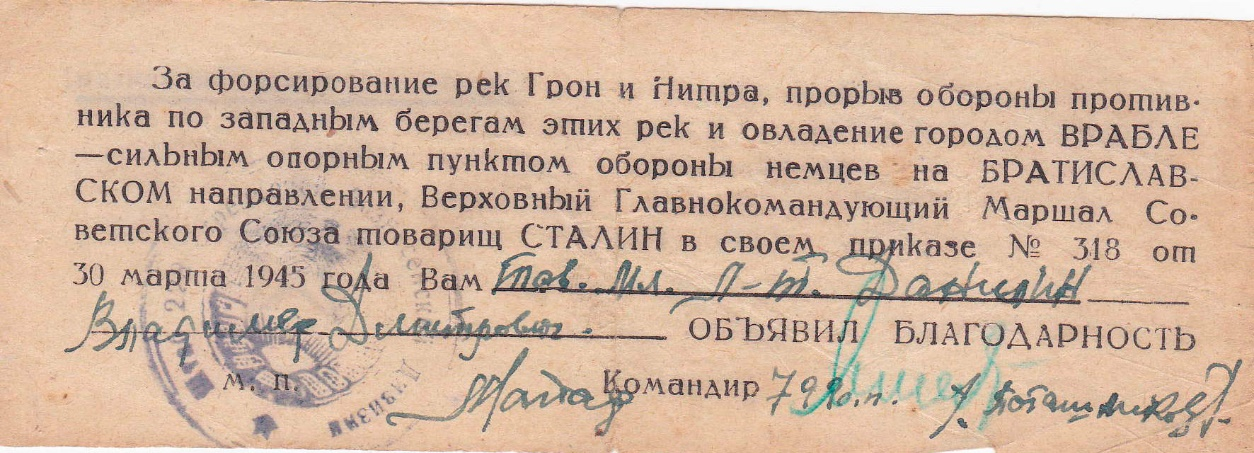 За форсирование рек Грон и Нитра, прорыв обороны против-
ника по западным берегам этих рек и овладение городом ВРАБЛЕ
—сильным опорным пунктом обороны немцев на БРАТИСЛАВ-
СКОМ направлении, Верховный Главнокомандующий Маршал Со-
ветского Союза товарищ СТАЛИН в своем приказе № 318 от
30 марта 1945 года Вам Тов. Мл. Л-т. Данилин
Владимер Дмитрович. ОБЪЯВИЛ БЛАГОДАРНОСТЬ
м. п. Командир
дивизии